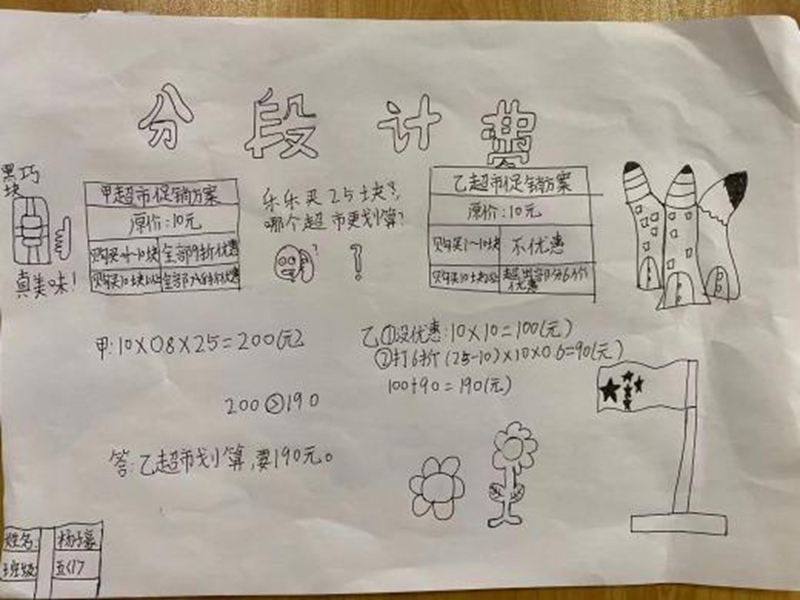 分段计费
黑巧
块
真美味!
甲超市促销方案
原价:10元
购买1~10块 全部9折优惠
购买10块以上 全部8折优惠
乐乐买25块?,
哪个超市更划算?
?
乙超市促销方案
原价:10元
购买1~10块 不优惠
购买10块以上 超出部分6折
优惠
甲:10×0.8×25=200(元)
乙①没优惠:10×10=100(元)
②打6折(25-10)×10×0.6=90(元)
100+90=190(元)
200>190
答:乙超市划算,要190元。
姓名:
班级: